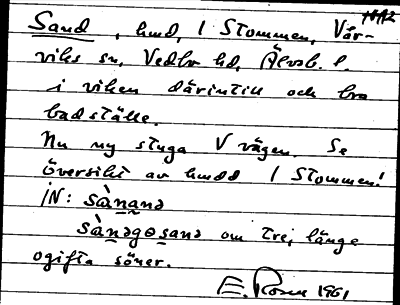 Sand, hmd, I Stommen, Vår-
viks sn, Vedbo hd, Älvsb. l.
i viken därintill och bra
badställe.
Nu ny stuga V vägen. Se
översikt av hmdd I Stommen!
IN: sànanə
sànəgosanə om tre, länge
ogifta söner.
E. Rosén 1961